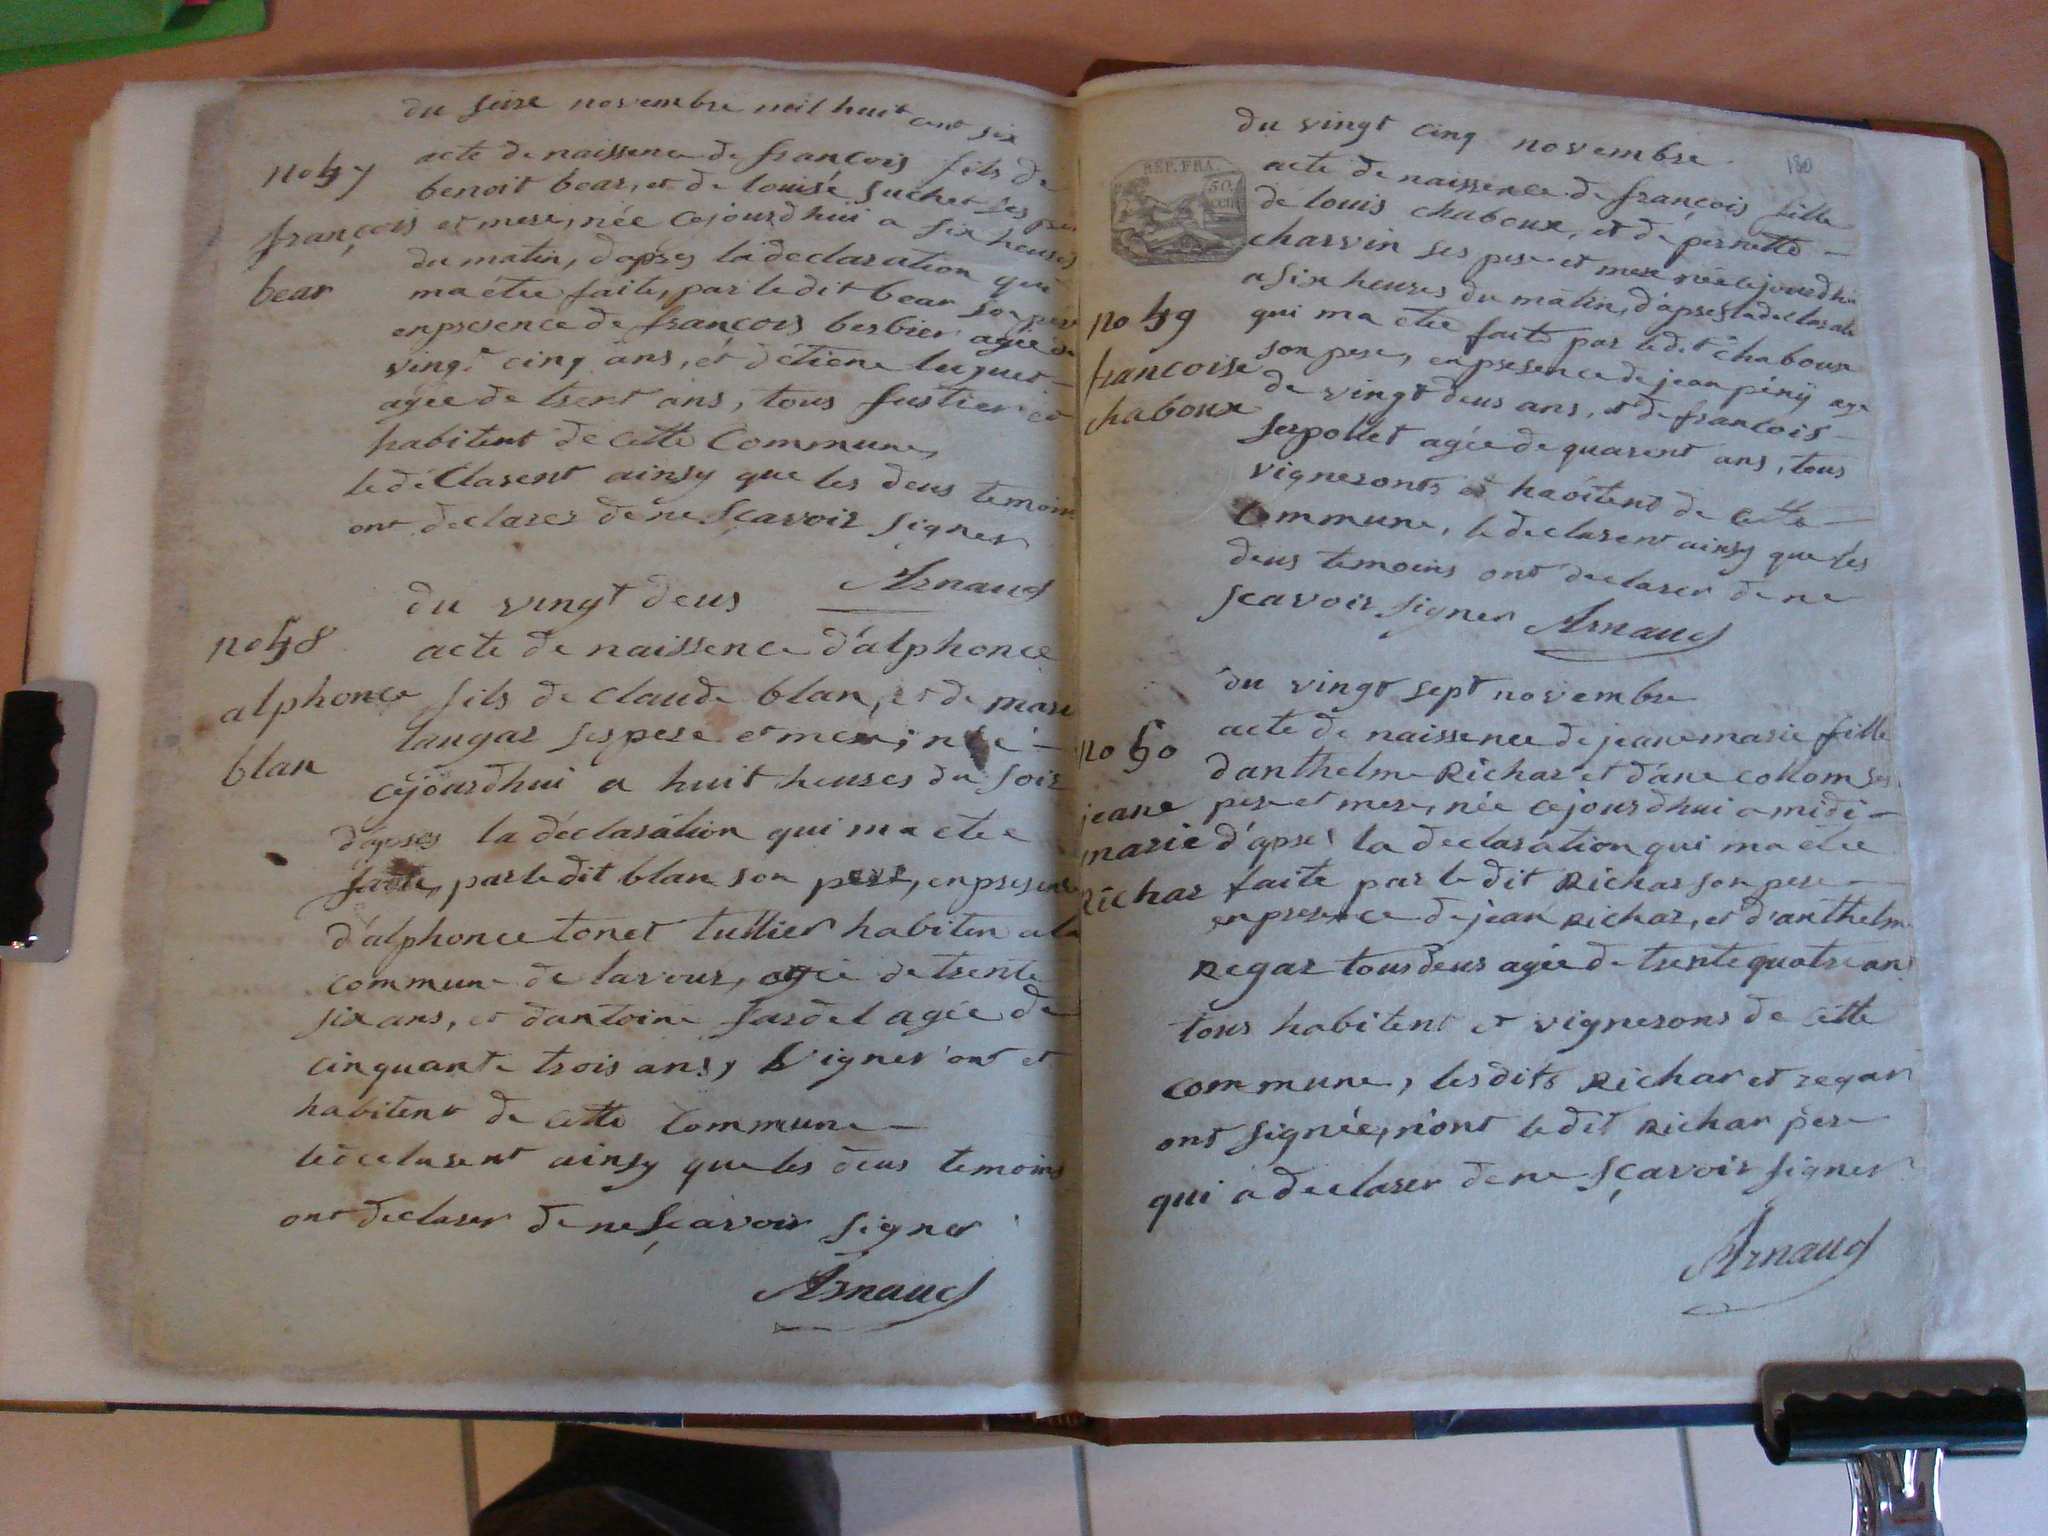 du seize novembre mil huit cent six
no 47
acte de naissence de françois fils de
benoit bear, et de louise suchet ses pere
françois
et mere, née cejourdhui a six heures
du matin, dapres la declaration qui
bear
ma étée faite, par le dit bear son pere
en presence de françois berbier agée de
vingt cinq ans, et détiene luguet
agée de trent ans, tous fustier et
habitent de cette Commune,
le déClarent ainsy que les deus temoins
ont declarer de ne sçavoir signer
Arnaud
du vingt deus
no 48
acte de naissence d'alphonce
alphonce
fils de claude blan, et de marie
blan
langar ses pere et mere, née
cejourdhui a huit heures du soir
dapres la déclaration qui ma etee
faite, par le dit blan son pere, en presence
d'alphonce tonet tullier habiten a la
commune de lavour, agée de trente
six ans, et dantoine fardel agée de
cinquante trois ans, vigneront et
habitent de cette Commune
le declarent ainsy que les deus temoins
ont declarer de ne sçavoir signer
Arnaud
180
du vingt cinq novembre
REP. FRA.
50
acte de naissence de françois fille
de louis chaboux, et de pernette
charvin ses pere et mere née cejourdhui
a six heures du matin, d'apres la declaratio
no 49
qui ma étée faite par le dit chaboux
francoise
son pere, en presence de jean pény age
chaboux
de vingt deus ans, et de francois
serpollet agée de quarent ans, tous
vigneronts et habitent de cette
Commune, le declarent ainsy que les
deus temoins ont declarer de ne
scavoir signer Arnaud
du vingt sept novembre
no 50
acte de naissence de jeane marie fille
danthelme Richar et dane collom ses
jeane
pere et mere, née cejourdhui a midi
marie
d'apres la declaration qui ma étée
Richar
faite par le dit Richar son pere
en presence de jean Richar, et danthelme
Regar tous deus agée de trente quatre ans
tous habitent et vignerons de cette
commune, lesdits Richar et regar
ont signée, n'ont le dit Richar pere
qui a declarer de ne sçavoir signer
Arnaud